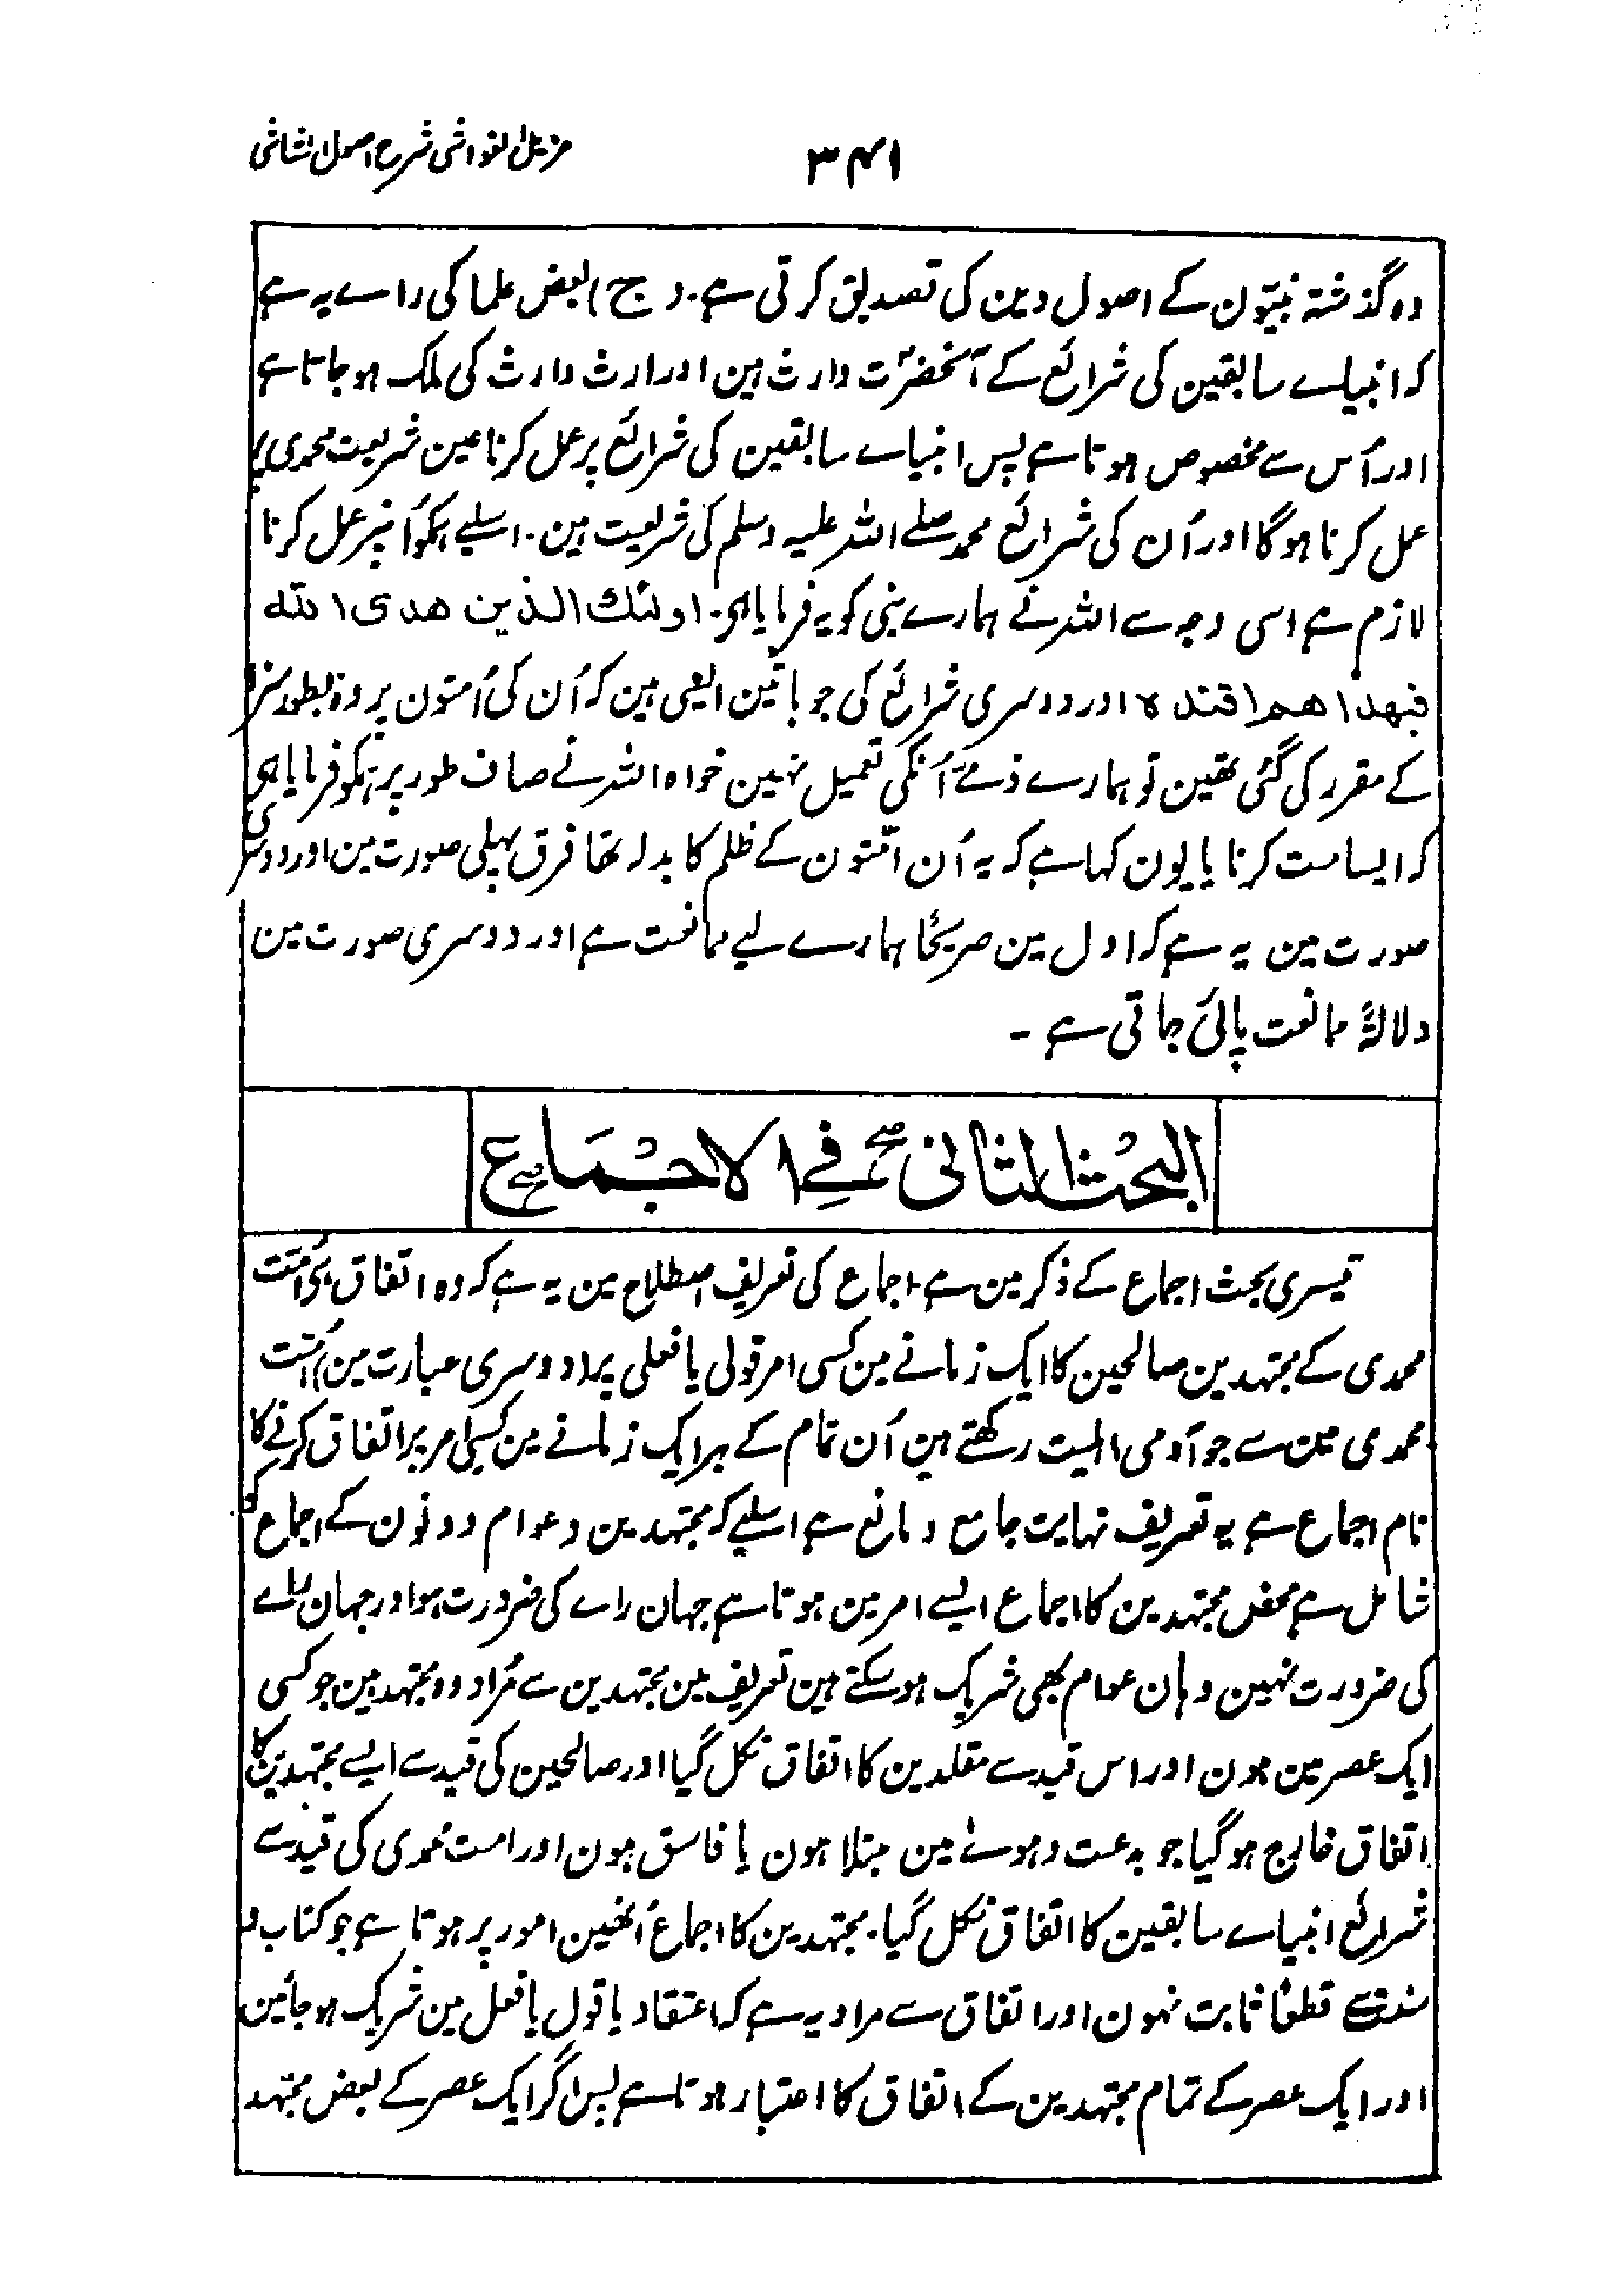 ۳۴۱ مزیل الغواشی شرح اصول الشاشی
وہ گذشتہ نبیّون کے اصول دین کی تصدیق کرتی ہے۔ (ج) بعض علما کی راے یہ ہے
کہ انبیاے سابقین کی شرائع کے آنحضرتؐ وارث ہین اور ارث وارث کی ملک ہو جاتا ہے
اور اُس سے مخصوص ہوتا ہے پس انبیاے سابقین کی شرائع پر عمل کرنا عین شریعت محمدی پر
عمل کرنا ہوگا اور اُن کی شرائع محمد صلے اللہ علیہ وسلم کی شریعت ہین۔ اسلیے ہمکو اُنپر عمل کرنا
لازم ہے اسی وجہ سے اللہ نے ہمارے نبی کو یہ فرمایا ہی۔ اولئک الذین ھدی اللہ
فبھداھم اقتدہ اور دوسری شرائع کی جو باتین ایسی ہین کہ اُن کی اُمتون پر وہ بطور سزا
کے مقرر کی گئی تھین تو ہمارے ذمّے اُنکی تعمیل نہین خواہ اللہ نے صاف طور پر ہمکو فرمایا ہی
کہ ایسا مت کرنا یا یون کہا ہے کہ یہ اُن امّتون کے ظلم کا بدلہ تھا فرق پہلی صورت مین اور دوسری
صورت مین یہ ہے کہ اول مین صریحًا ہمارے لیے ممانعت ہے اور دوسری صورت مین
دلالۃً ممانعت پائی جاتی ہے ۔
البحث الثانی فی الاجماع
تیسری بحث اجماع کے ذکر مین ہے۔ اجماع کی تعریف اصطلاح مین یہ ہے کہ وہ اتفاق ہی اُمّت
محمدی کے مجتہدین صالحین کا ایک زمانے مین کسی امر قولی یا فعلی پر (دوسری عبارت مین) اُمّت
محمدی مین سے جو آدمی اہلیت رکھتے ہین اُن تمام کے ہر ایک زمانے مین کسی امر پر اتفاق کرنے کا
نام اجماع ہے یہ تعریف نہایت جامع و مانع ہے اسلیے کہ مجتہدین و عوام دونون کے اجماع کو
شامل ہے محض مجتہدین کا اجماع ایسے امر مین ہوتا ہے جہان راے کی ضرورت ہو اور جہان راے
کی ضرورت نہین وہان عوام بھی شریک ہو سکتے ہین تعریف مین مجتہدین سے مُراد وہ مجتہد ہین جو کسی
ایک عصر مین ہون اور اس قید سے مقلدین کا اتفاق نکل گیا اور صالحین کی قید سے ایسے مجتہدین کا
اتفاق خارج ہو گیا جو بدعت و ہوے مین مبتلا ہون یا فاسق ہون اور امت محمدی کی قید سے
شرائع انبیاے سابقین کا اتفاق نکل گیا۔ مجتہدین کا اجماع اُنھین امور پر ہوتا ہے جو کتاب و
سنت سے قطعًا ثابت نہون اور اتفاق سے مراد یہ ہے کہ اعتقاد یا قول یا فعل مین شریک ہو جائین
اور ایک عصر کے تمام مجتہدین کے اتفاق کا اعتبار ہوتا ہے پس اگر ایک عصر کے بعض مجتہد